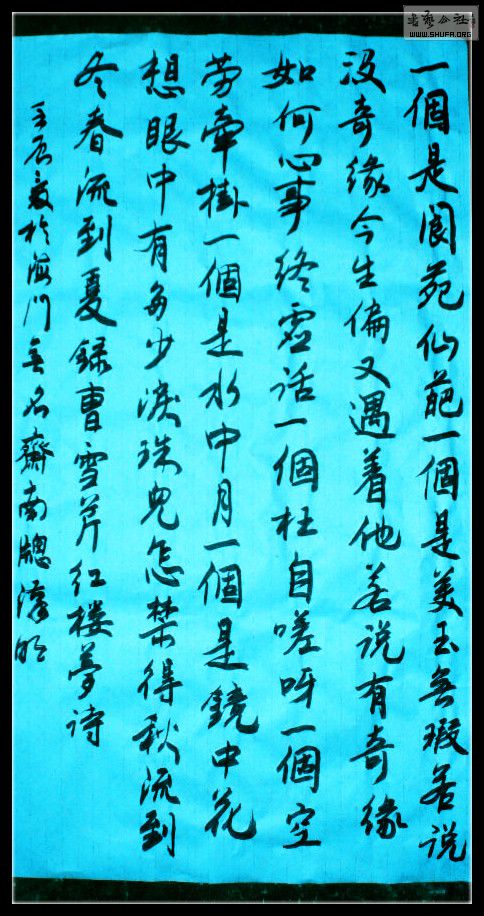 一個是阆苑仙葩一個是美玉無瑕若説
没奇緣今生偏又遇着他若説有奇緣
如何心事終虚話一個枉自嗟呀一個空
劳牽掛一個是水中月一個是鏡中花
想眼中有多少淚珠兒怎禁得秋流到
冬春流到夏録曹雪芹红楼夢诗
壬辰夏於海門無名齋南牕
書藝公社
WWW.SHUFA.ORG